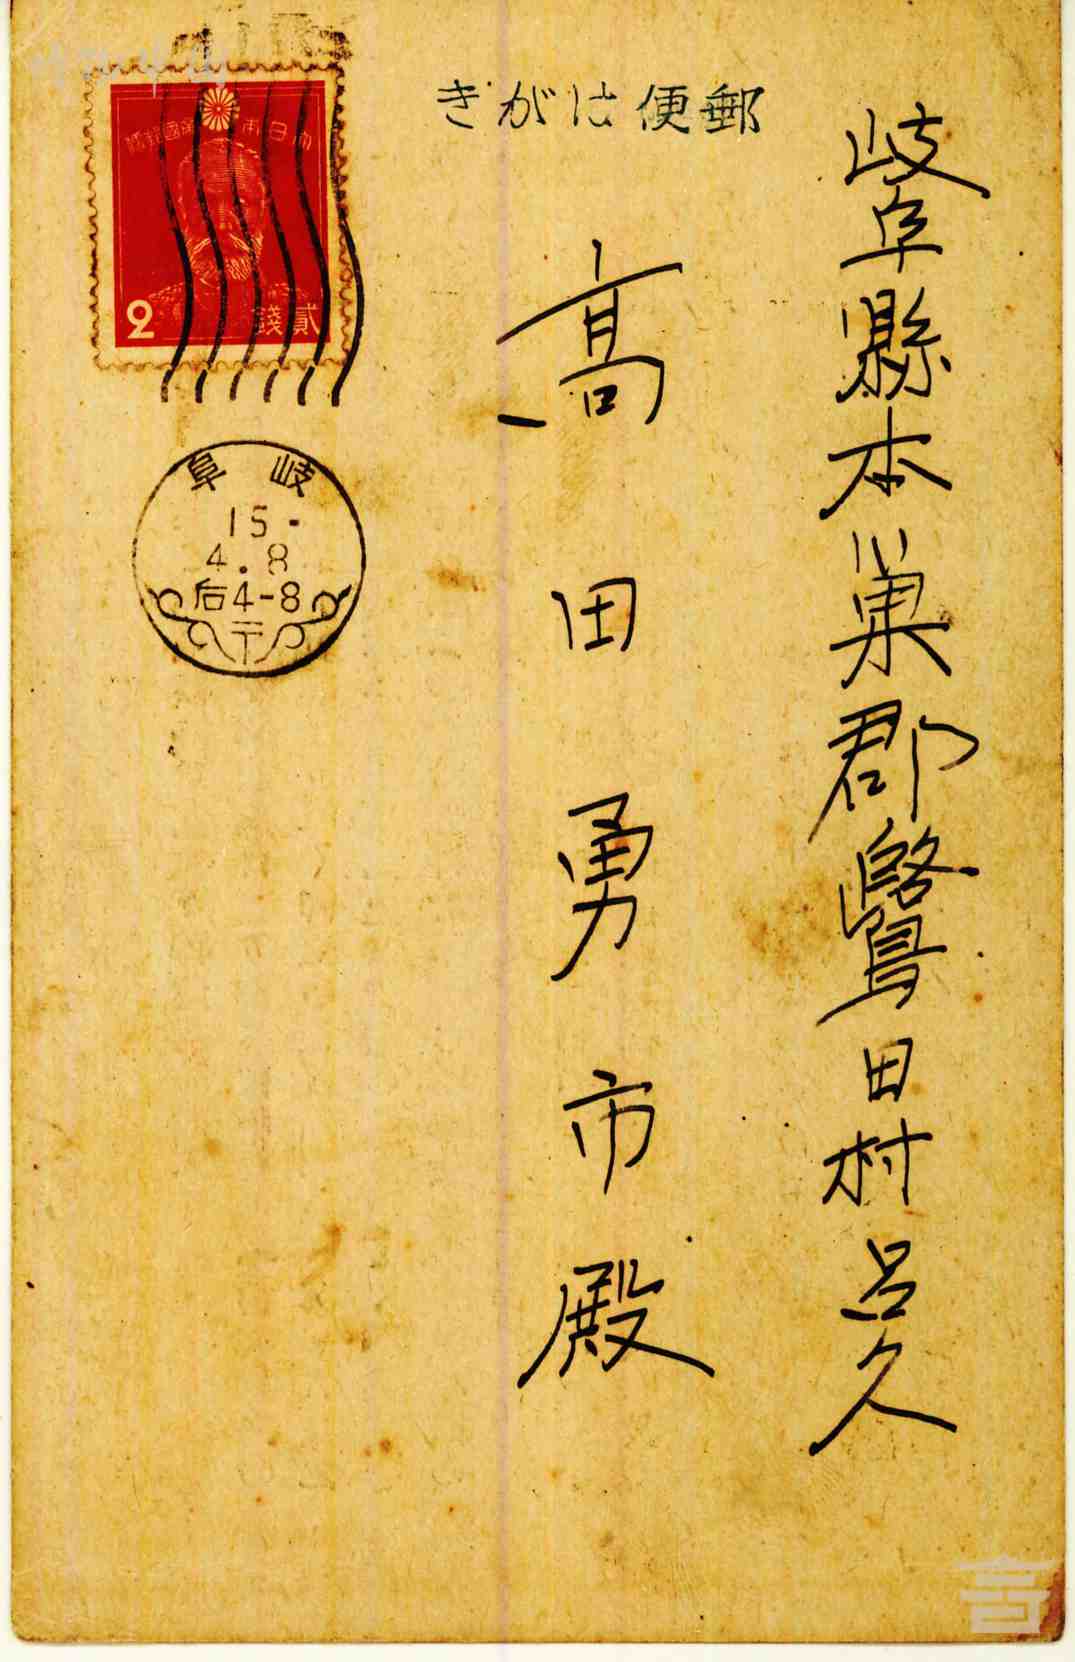 郵便はがき
岐阜縣本巣郡鷺田村呂久
高田勇市殿
大日本帝國郵便
2
貳錢
岐阜
15.
4.8
后4-8
〒